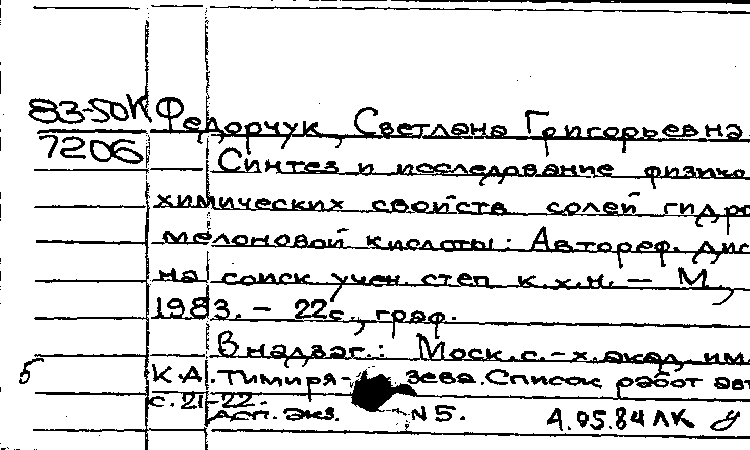 83-50К Федорчук, Светлана Григорьевна
7206 Синтез и исследование физико
химических свойств солей гидро
мелоновой кислоты: Автореф. дис
на соиск. учен. степ к.х.н. — М.,
1983. — 22с., граф.
В надзаг.: Моск. с.-х. акад. им.
5 К.А. Тимиря- зева. Список работ авт
с. 21-22.
Дсп. экз. N 5.
А.05.84 ЛК